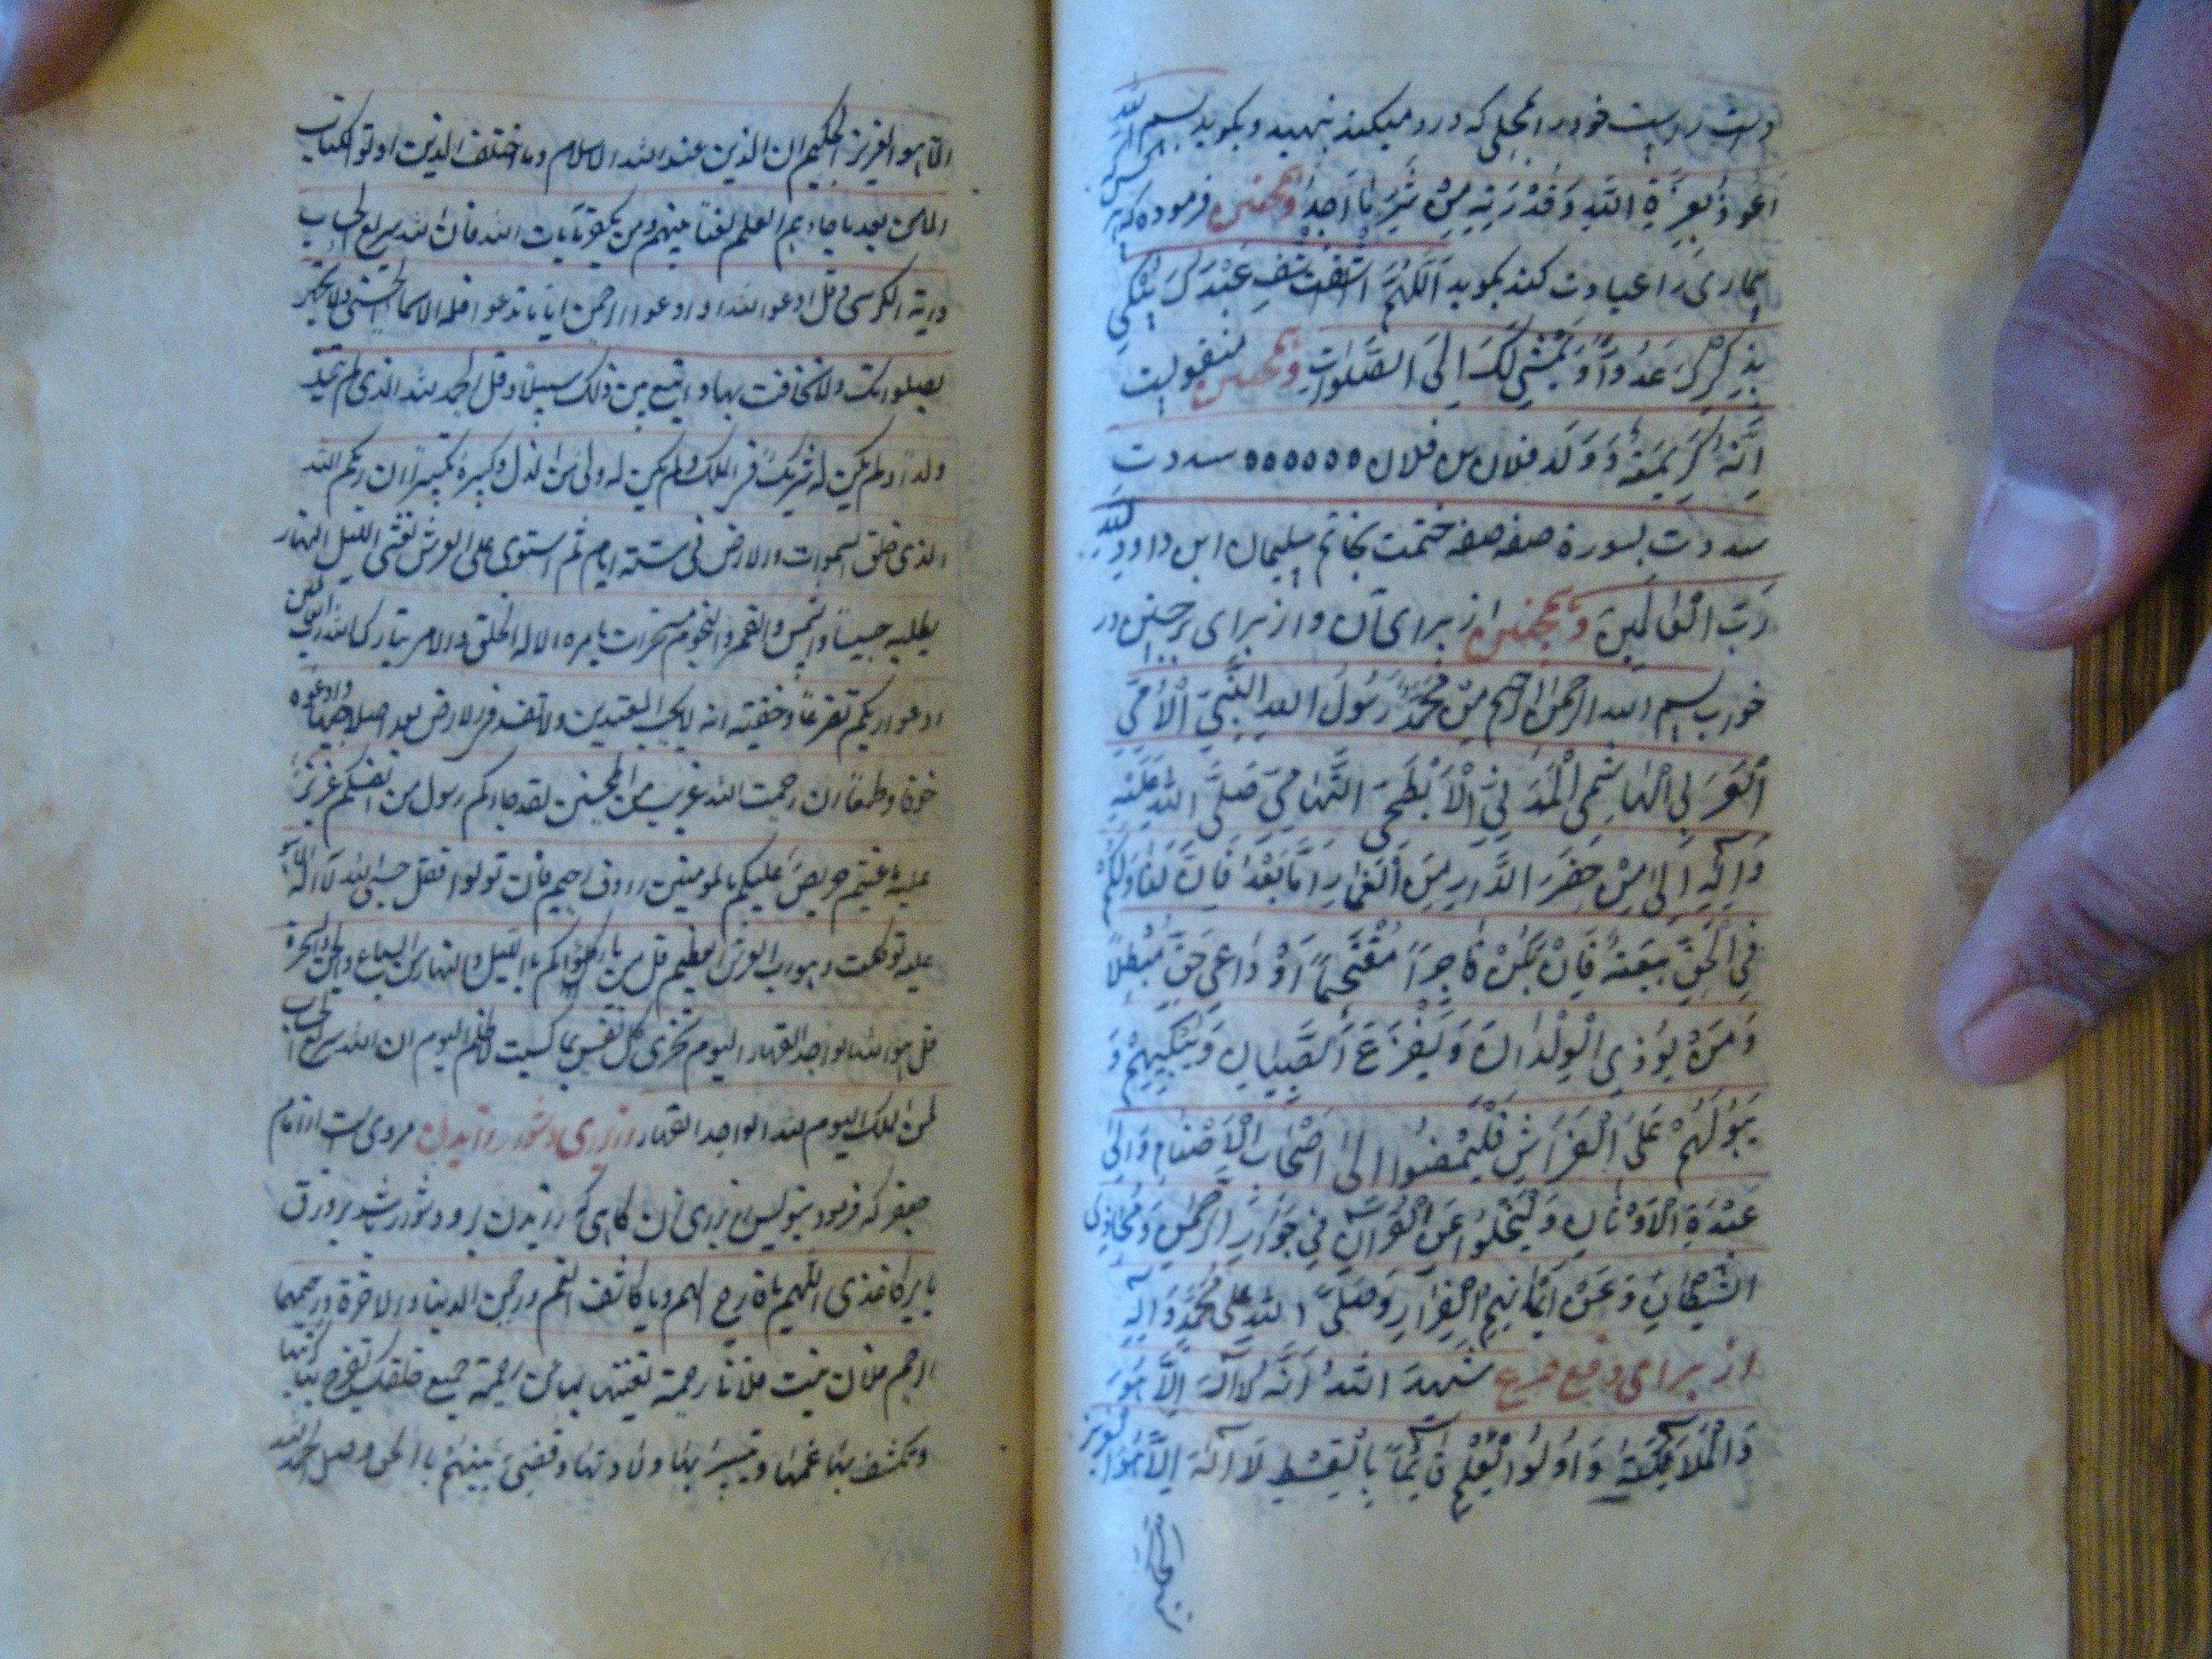 دست راست خود را بمحلی که درد میکند بنهید و بگوید بسم الله
اعوذ بعزة الله وقدرته من شر ما اجد وهمچنین فرموده که هر
بیماری را عیادت کند بگوید اللهم اشف عبدک ینکی
عدوا ویمشی لک الی الصلوات وهمچنین منقولیت
فلان بن فلان ٥٥٥٥٥٥ سددت
سددت بسورة صفه صفه ختمت بخاتم سلیمان ابن داود
رب العالمین وهمچنین از برای آن و از برای ترسیدن در
خواب بسم الله الرحمن الرحیم من محمد رسول الله النبی الامی
العربی الهاشمی المدنی الابطحی التهامی صلی الله علیه
وآله الی من حضر الدار من العمار اما بعد فان لنا ولکم
فی الحق سعة فان یکن فاجرا مقتحما او داعی حق مبطلا
ومن یؤذی الولدان ویفزع الصبیان ویبکیهم و
یبولهم علی الفراش فلیمضوا الی اصحاب الاصنام والی
عبدة الاوثان ولیخلوا عن القرآن فی جوار الرحمن ومخازی
الشیطان وعن ایمانهم القرآن وصلی الله علی محمد وآله
از برای دفع صرع شهد الله انه لا اله الا هو
والملائکة واولوا العلم قائما بالقسط لا اله الا هو العزیز
الا هو العزیز الحکیم ان الدین عند الله الاسلام وما اختلف الذین اوتوا الکتاب
الا من بعد ما جاءهم العلم بغیا بینهم ومن یکفر بآیات الله فان الله سریع الحساب
وآیة الکرسی قل ادعوا الله او ادعوا الرحمن ایا ما تدعوا فله الاسماء الحسنی ولا تجهر
بصلوتک ولا تخافت بها وابتغ بین ذلک سبیلا وقل الحمد لله الذی لم یتخذ
ولدا ولم یکن له شریک فی الملک ولم یکن له ولی من الذل وکبره تکبیرا ان ربکم الله
الذی خلق السموات والارض فی ستة ایام ثم استوی علی العرش یغشی اللیل النهار
یطلبه حثیثا والشمس والقمر والنجوم مسخرات بامره الا له الخلق والامر تبارک الله رب العالمین
ادعوا ربکم تضرعا وخفیة انه لا یحب المعتدین ولا تفسدوا فی الارض بعد اصلاحها وادعوه
خوفا وطمعا ان رحمت الله قریب من المحسنین لقد جاءکم رسول من انفسکم عزیز
علیه ما عنتم حریص علیکم بالمومنین رؤوف رحیم فان تولوا فقل حسبی الله لا اله الا هو
علیه توکلت وهو رب العرش العظیم قل من یکلؤکم باللیل والنهار من السباع والجن والسحرة
قل هو الله الواحد القهار الیوم تجزی کل نفس بما کسبت لا ظلم الیوم ان الله سریع الحساب
لمن الملک الیوم لله الواحد القهار از برای دشوار زائیدن مرویست از امام
جعفر که فرمود بنویس از برای زن گاهی که زائیدن بر او دشوار باشد بر ورق
یا بر کاغذی اللهم یا فارج الهم ویا کاشف الغم ورحمن الدنیا والاخرة ورحیمهما
ارحم فلان بنت فلان رحمة تغنیها بها عن رحمة جمیع خلقک تفرج بها کربتها
وتکشف بها غمها وتیسر بها ولادتها وقضی بینهم بالحق وقیل الحمد لله